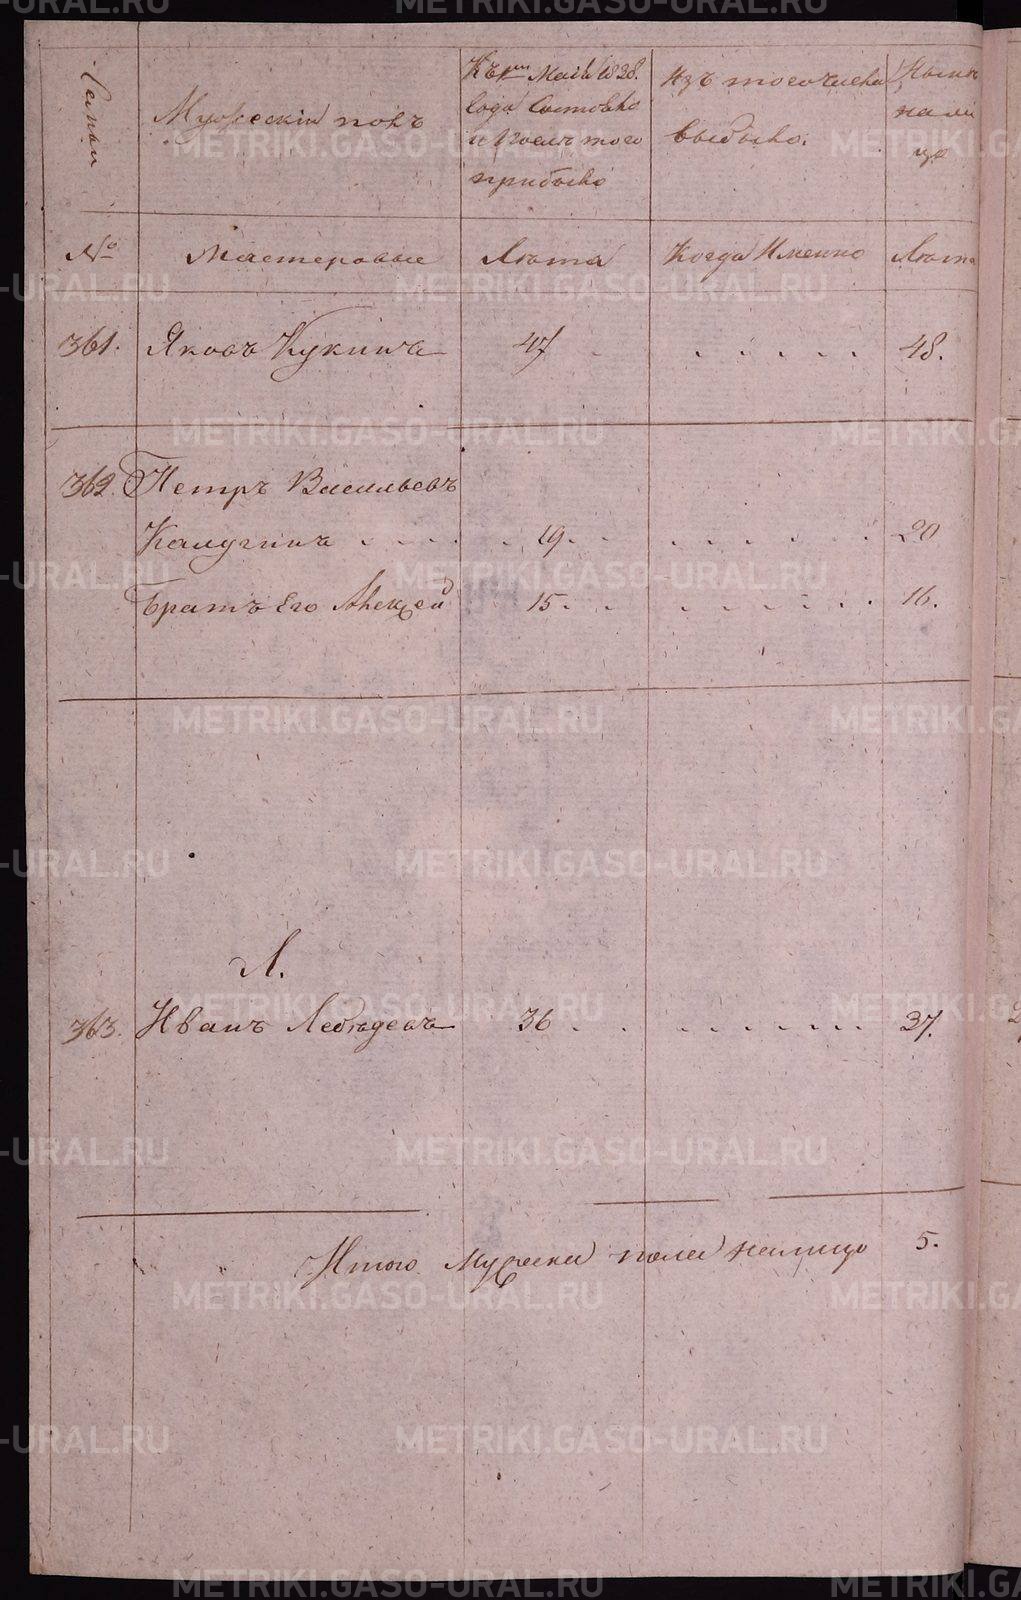 Семьи
Мужескій полъ
Къ 1му Маія 1828.
года Состояло
и после того
прибыло
Изъ того числа
выбыло.
Ныне
нали
цо
№
Мастеровые
Лѣта
Когда Именно
Лѣта
361. Яковъ Кукинъ 47 48.
362. Петръ Васильевъ
Калугинъ 19. 20
Братъ Его Алексѣй 15. 16.
Л.
363. Иванъ Лебѣдевъ 36 37.
Итого Мужеска пола налицо 5.
METRIKI.GASO-URAL.RU